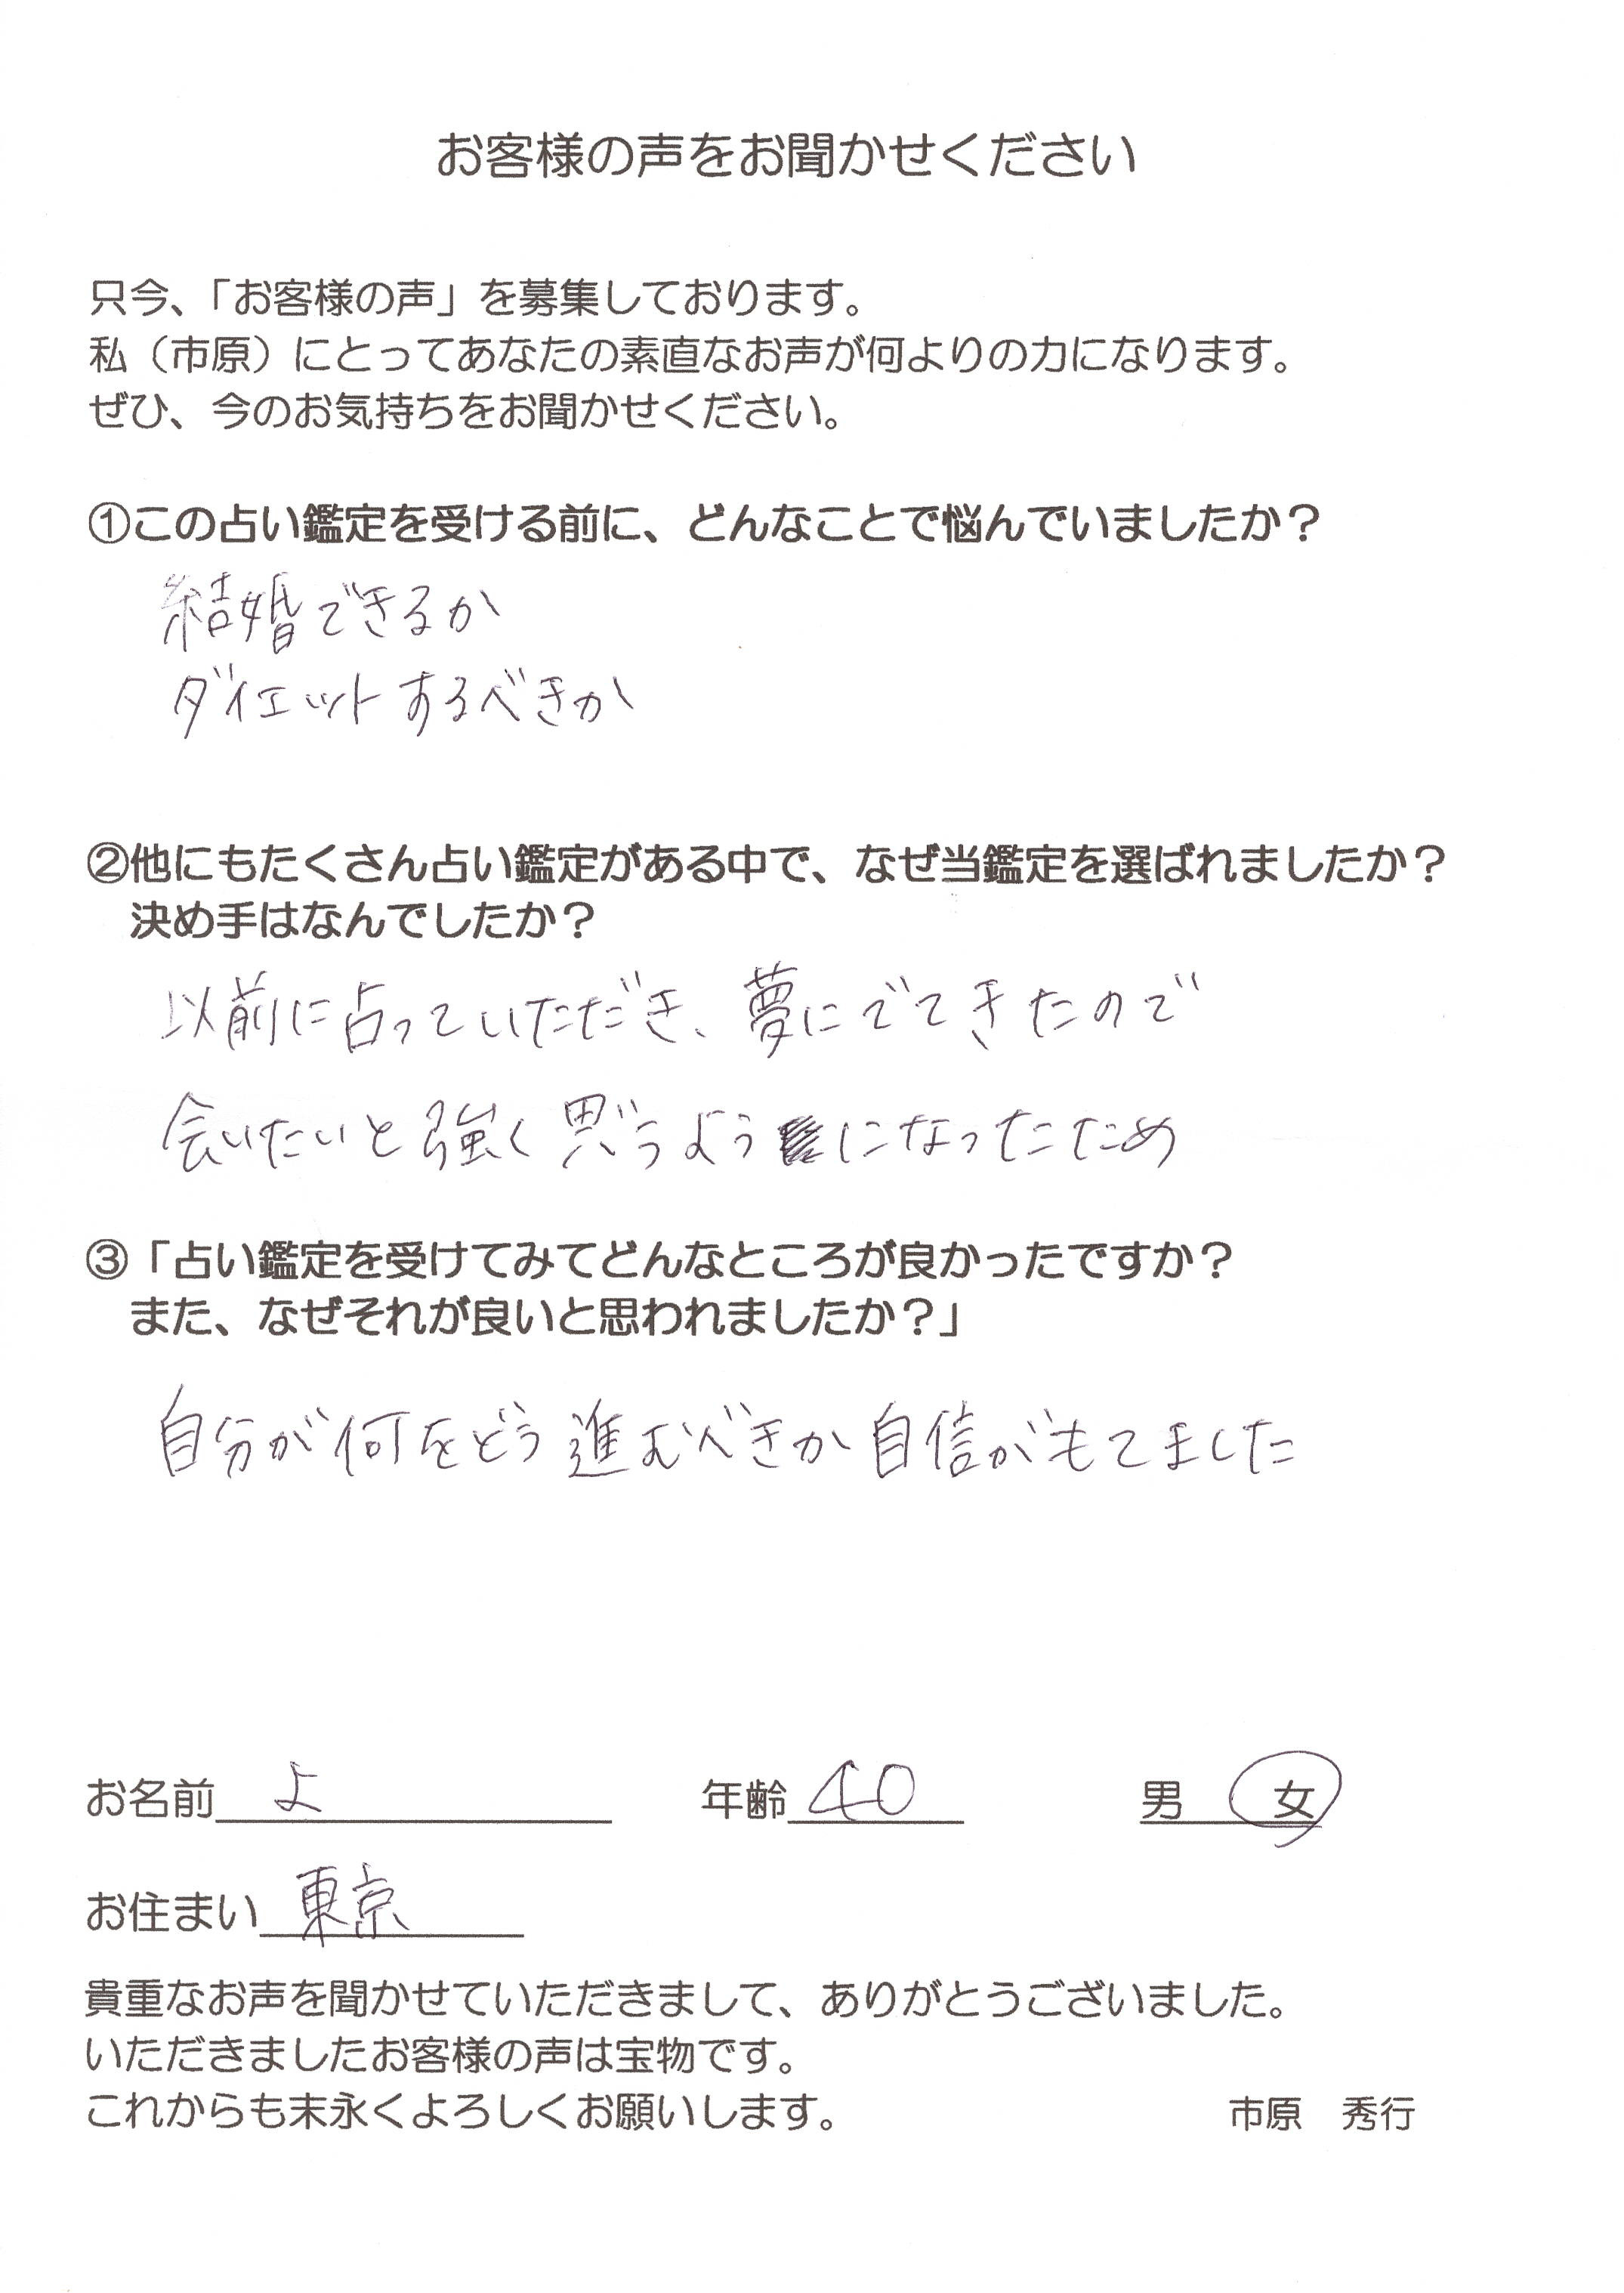 お客様の声をお聞かせください
只今、「お客様の声」を募集しております。
私（市原）にとってあなたの素直なお声が何よりの力になります。
ぜひ、今のお気持ちをお聞かせください。
①この占い鑑定を受ける前に、どんなことで悩んでいましたか？
結婚できるか
ダイエットするべきか
②他にもたくさん占い鑑定がある中で、なぜ当鑑定を選ばれましたか？
決め手はなんでしたか？
以前に占っていただき、夢にでてきたので
会いたいと強く思うようになったため
③「占い鑑定を受けてみてどんなところが良かったですか？
また、なぜそれが良いと思われましたか？」
自分が何をどう進むべきか自信がもてました
お名前 よ 年齢 40 男 女
お住まい 東京
貴重なお声を聞かせていただきまして、ありがとうございました。
いただきましたお客様の声は宝物です。
これからも末永くよろしくお願いします。 市原 秀行